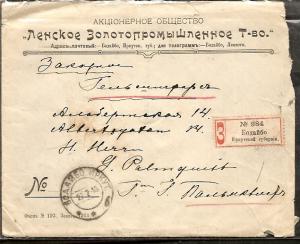 АКЦІОНЕРНОЕ ОБЩЕСТВО
"Ленское Золотопромышленное Т-во."
Адресъ: почтовый:—Бодайбо, Иркутск. губ.; для телеграммъ:—Бодайбо, Ленкого.
Заказное
Гельсингфорсъ
Албертская 14.
Albertsgatan 14.
H. Herr
G. Palmquist
Г-ну Г. Пальмквистъ
З
№ 284
Бодайбо
Иркутской губерніи.
№